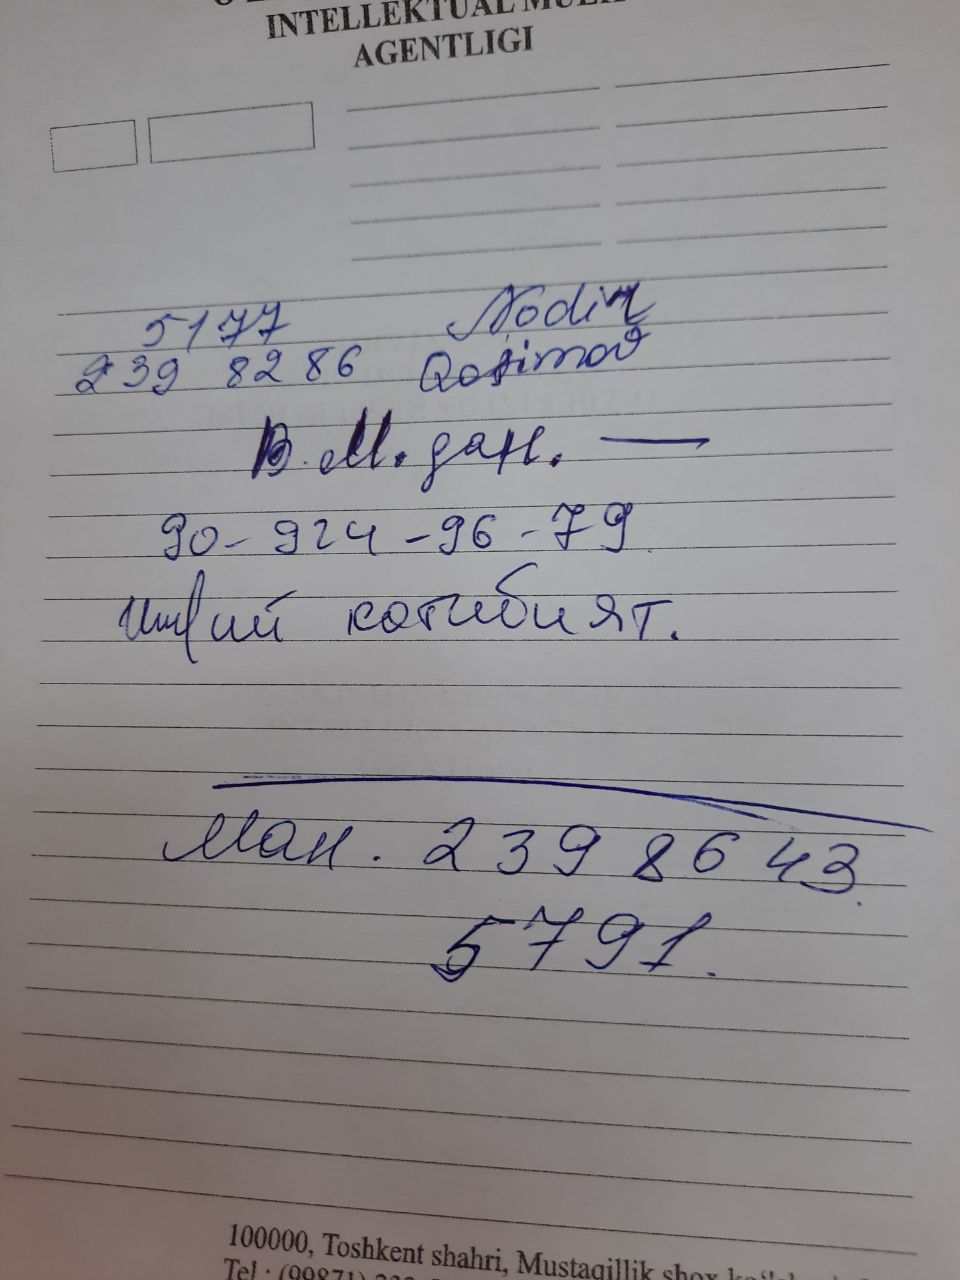 INTELLEKTUAL MULK
AGENTLIGI
5177 Nodir
239 8286 Qosimov
В.М.дан. —
90-924-96-79
котибият.
Ман. 239 86 43
5791.
100000, Toshkent shahri, Mustaqillik shox
Tel.: (99871)